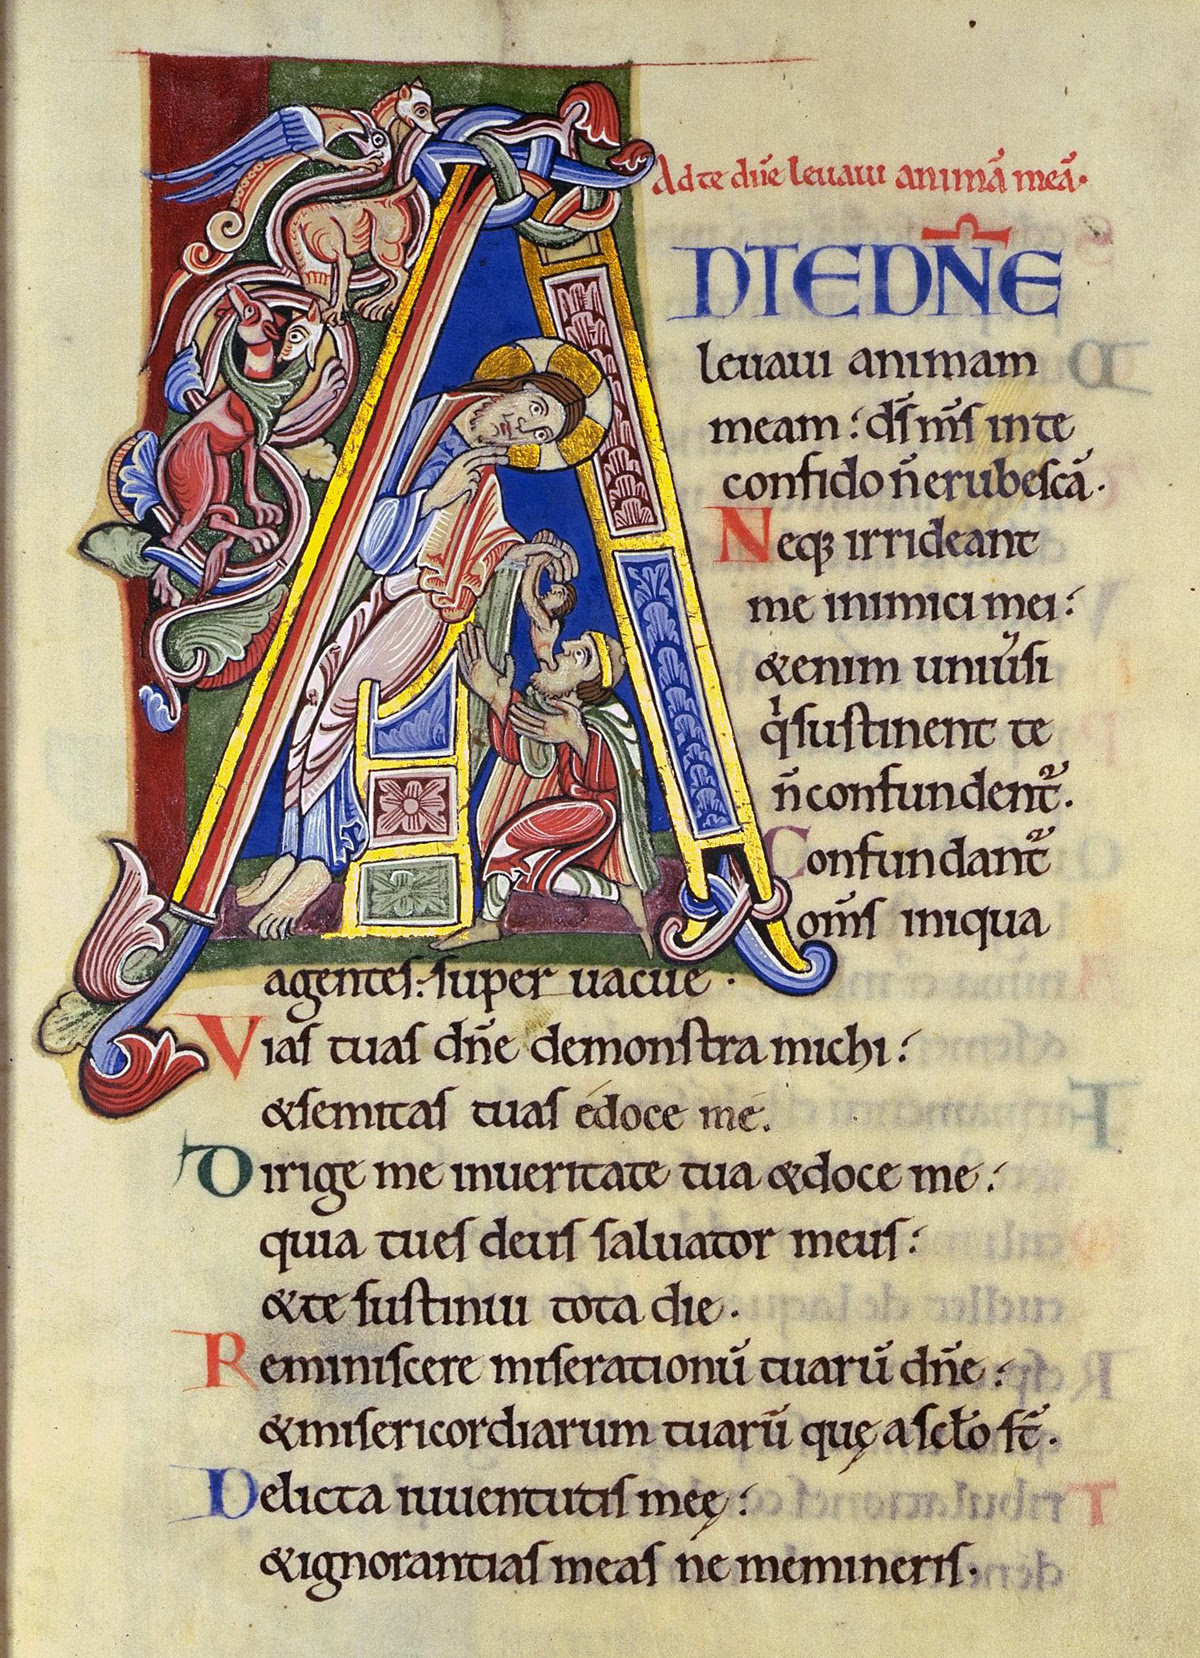 Ad te dn̄e leuaui animā meā.
AD TE DN̄E
leuaui animam
meam: ds̄ ms̄ in te
confido n̄ erubescā.
Neq; irrideant
me inimici mei:
&enim uniu̾si
qͥ sustinent te
n̄ confundent᷑.
Confundant᷑
om̄s iniqua
agentes: super uacue.
Vias tuas dn̄e demonstra michi:
&semitas tuas edoce me.
Dirige me in ueritate tua &doce me:
quia tu es deus saluator meus:
&te sustinui tota die.
Reminiscere miserationū tuarū dn̄e:
&misericordiarum tuarū quę a sc̄lo sт̄.
Delicta iuuentutis meę:
&ignorantias meas ne memineris.